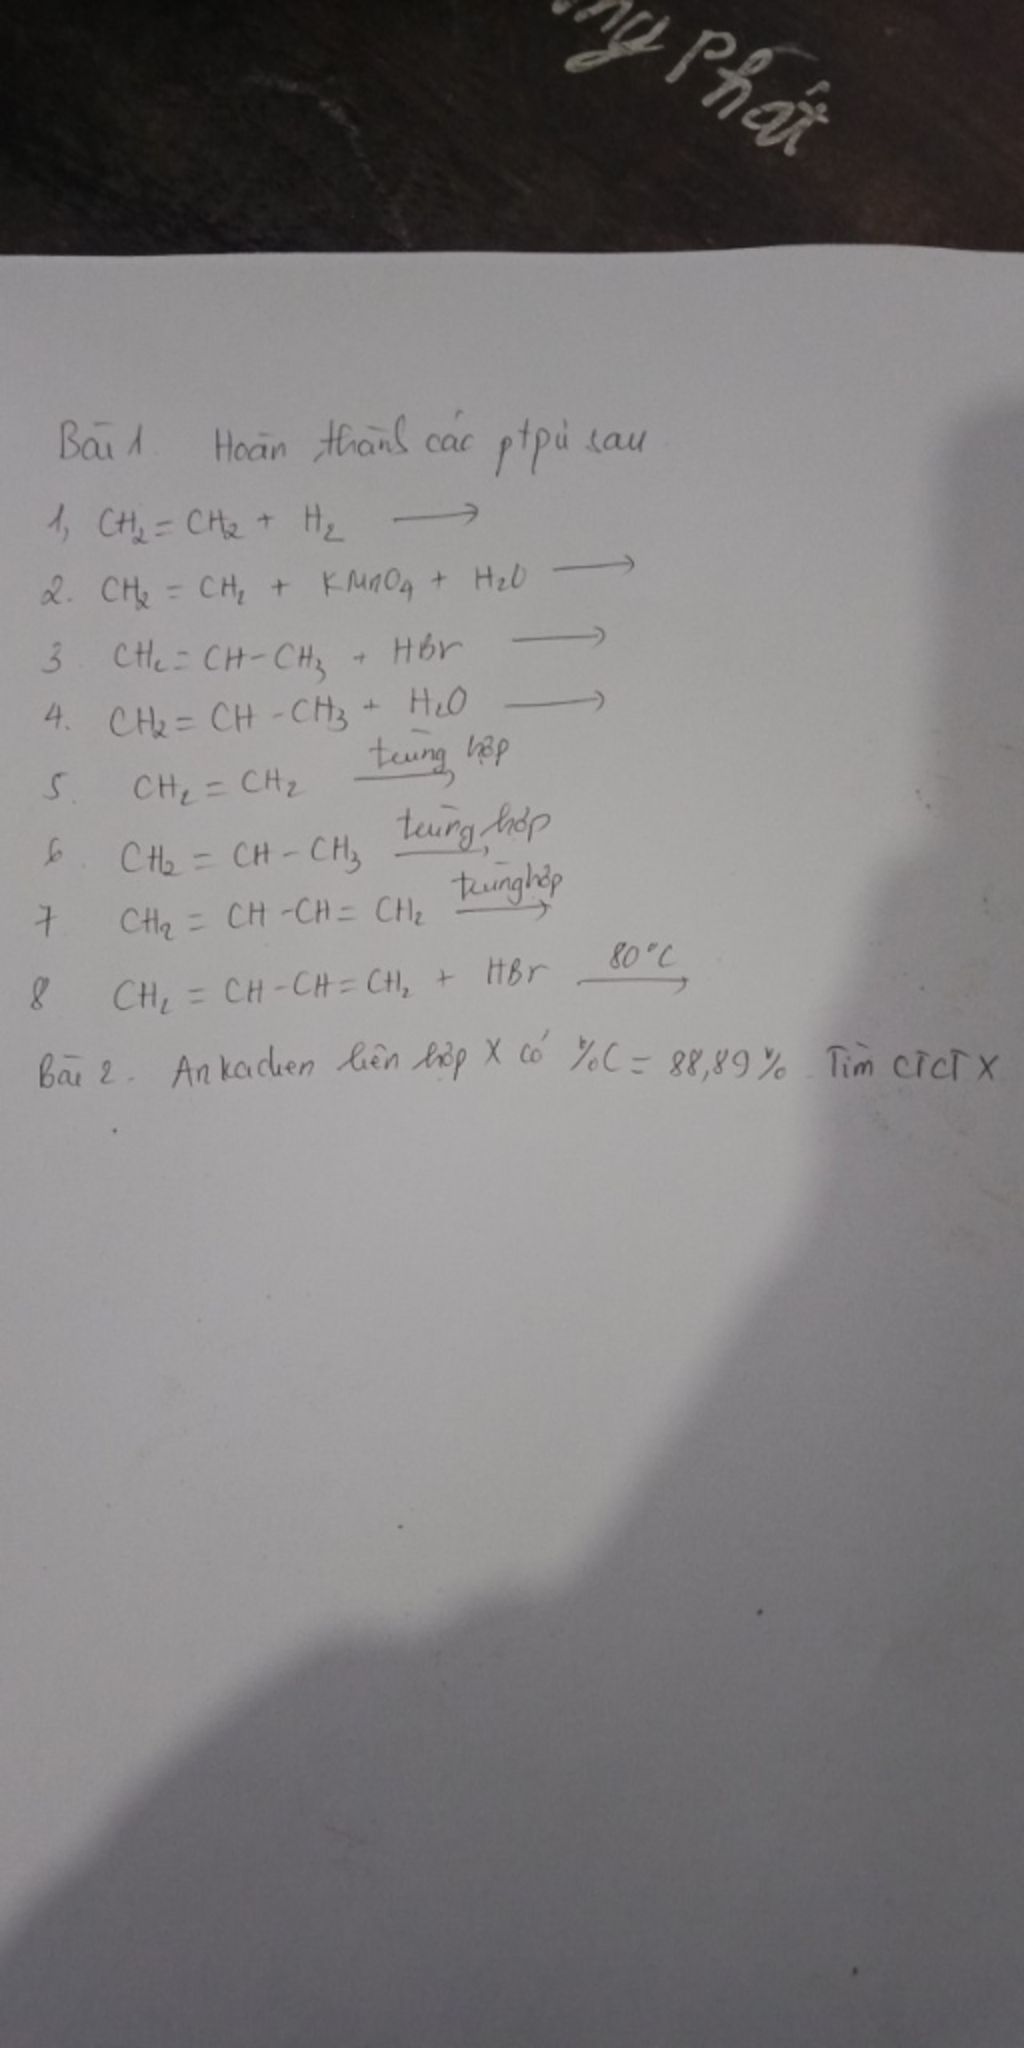 Phát
Bài 1. Hoàn thành các ptpứ sau
1, CH2 = CH2 + H2 →
2. CH2 = CH2 + KMnO4 + H2O →
3 CH2 = CH-CH3 + HBr →
4. CH2 = CH - CH3 + H2O →
5. CH2 = CH2 trùng hợp →
6. CH2 = CH - CH3 trùng hợp →
7 CH2 = CH - CH = CH2 trùng hợp →
8 CH2 = CH - CH = CH2 + HBr 80°C →
Bài 2. Ankađien liên hợp X có %C = 88,89% Tìm CTCT X